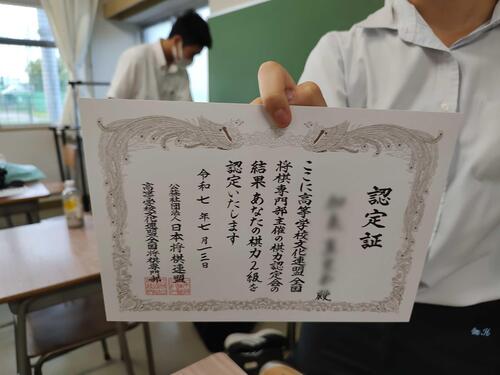 認定証
殿
ここに高等学校文化連盟全国
将棋専門部主催の棋力認定会の
結果あなたの棋力2級を
認定いたします
令和七年七月一三日
公益社団法人日本将棋連盟
高等学校文化連盟全国将棋専門部